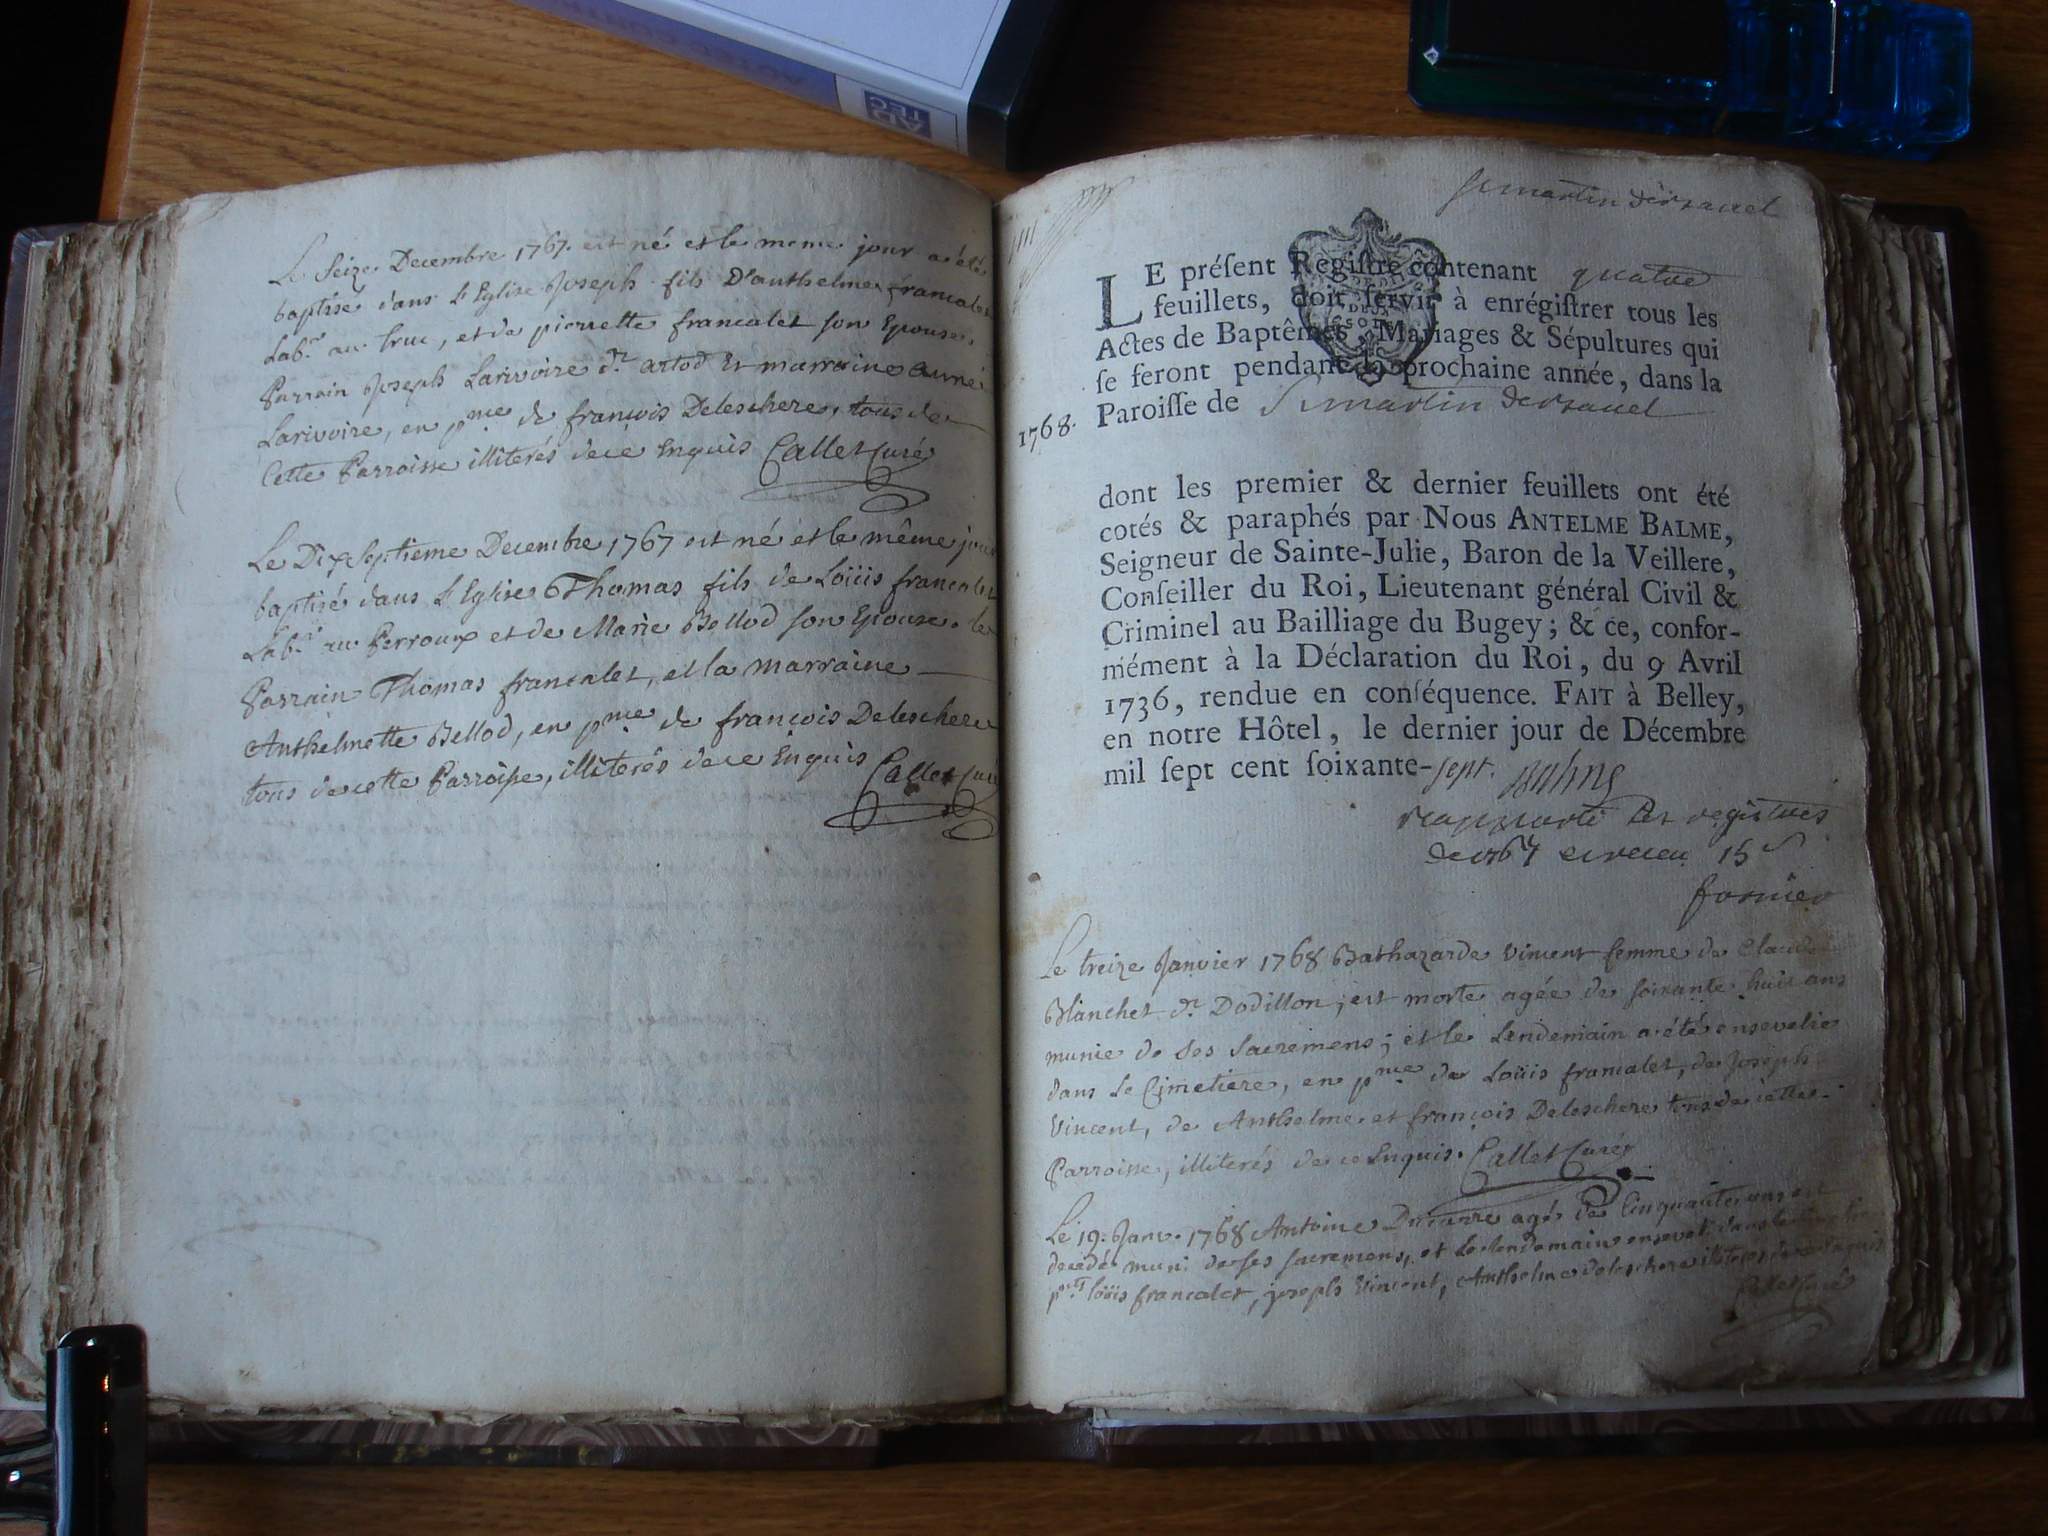 AD
TEC
Le Seize Decembre 1767. est né et le meme jour a été
baptisé dans L'Eglise Joseph fils D'anthelme francalet
Lab.r au truc, et de pierrette francalet son Epouse.
Parrain Joseph Larivoire d.t artod Et marraine Aimé
Larivoire, en p.nce de françois Deleschere, tous de
Cette Parroisse illiterés de ce Enquis Callet Curé
Le Dix Septieme Decembre 1767 est né et le même jour
baptisé dans L'Eglise Thomas fils de Loüis francalet
Lab.r au Perroux et de Marie Bellod son Epouse. le
Parrain Thomas francalet, et la marraine
Anthelmette Bellod, en p.nce de françois Deleschere
tous de cette Parroisse, illiterés de ce Enquis Callet Curé
St martin
LE préſent Regiſtre contenant quatre
feuillets, doit ſervir à enrégiſtrer tous les
Actes de Baptêmes, Mariages & Sépultures qui
ſe feront pendant la prochaine année, dans la
1768. Paroiſſe de St martin
dont les premier & dernier feuillets ont été
cotés & paraphés par Nous ANTELME BALME,
Seigneur de Sainte-Julie, Baron de la Veillere,
Conſeiller du Roi, Lieutenant général Civil &
Criminel au Bailliage du Bugey; & ce, confor-
mément à la Déclaration du Roi, du 9 Avril
1736, rendue en conſéquence. FAIT à Belley,
en notre Hôtel, le dernier jour de Décembre
mil ſept cent ſoixante-sept. Balme
rapporté les registres
de 1767 et receu 15 s
fornier
Le treize Janvier 1768 Bathazarde Vincent femme de Claude
Blanchet d.t Dodillon, est morte agée de soixante huit ans
munie de ses Sacremens; et le Lendemain a été ensevelie
dans Le Cimetiere, en p.nce de Loüis francalet, de Joseph
Vincent, de Anthelme et françois Deleschere tous de cette
Parroisse, illiterés de ce Enquis. Callet Curé
Le 19. Janv. 1768 Antoine Ducarre agé de Cinquante ans est
decedé muni de ses sacremens, et Le lendemain enseveli dans le
p.nts loüis francalet, joseph Vincent, Anthelme deleschere illiteres de ce enquis
Callet Curé